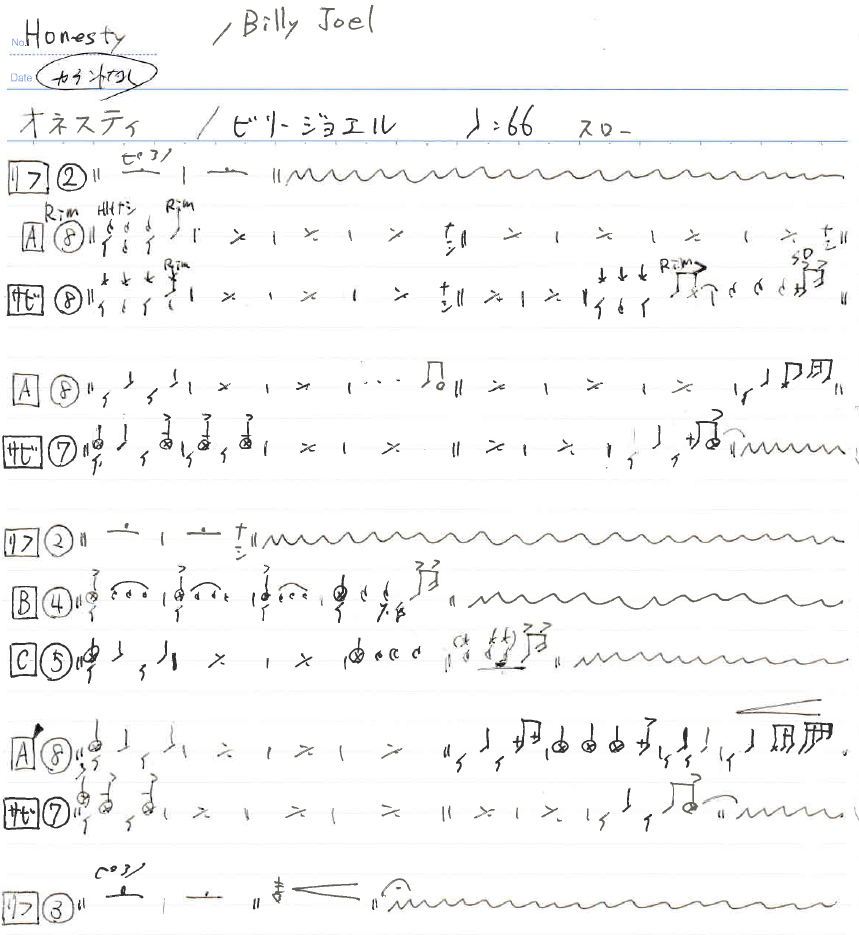 No. Honesty / Billy Joel
Date カウントなし
オネスティ / ビリージョエル ♩=66 スロー
リフ ② ピアノ
A ⑧ Rim HHナシ Rim ナシ ナシ
サビ ⑧ Rim ナシ Rim SD
A ⑧
サビ ⑦
リフ ② ナシ
B ④
C ⑤
A' ⑧
サビ ⑦
リフ ③ ピアノ